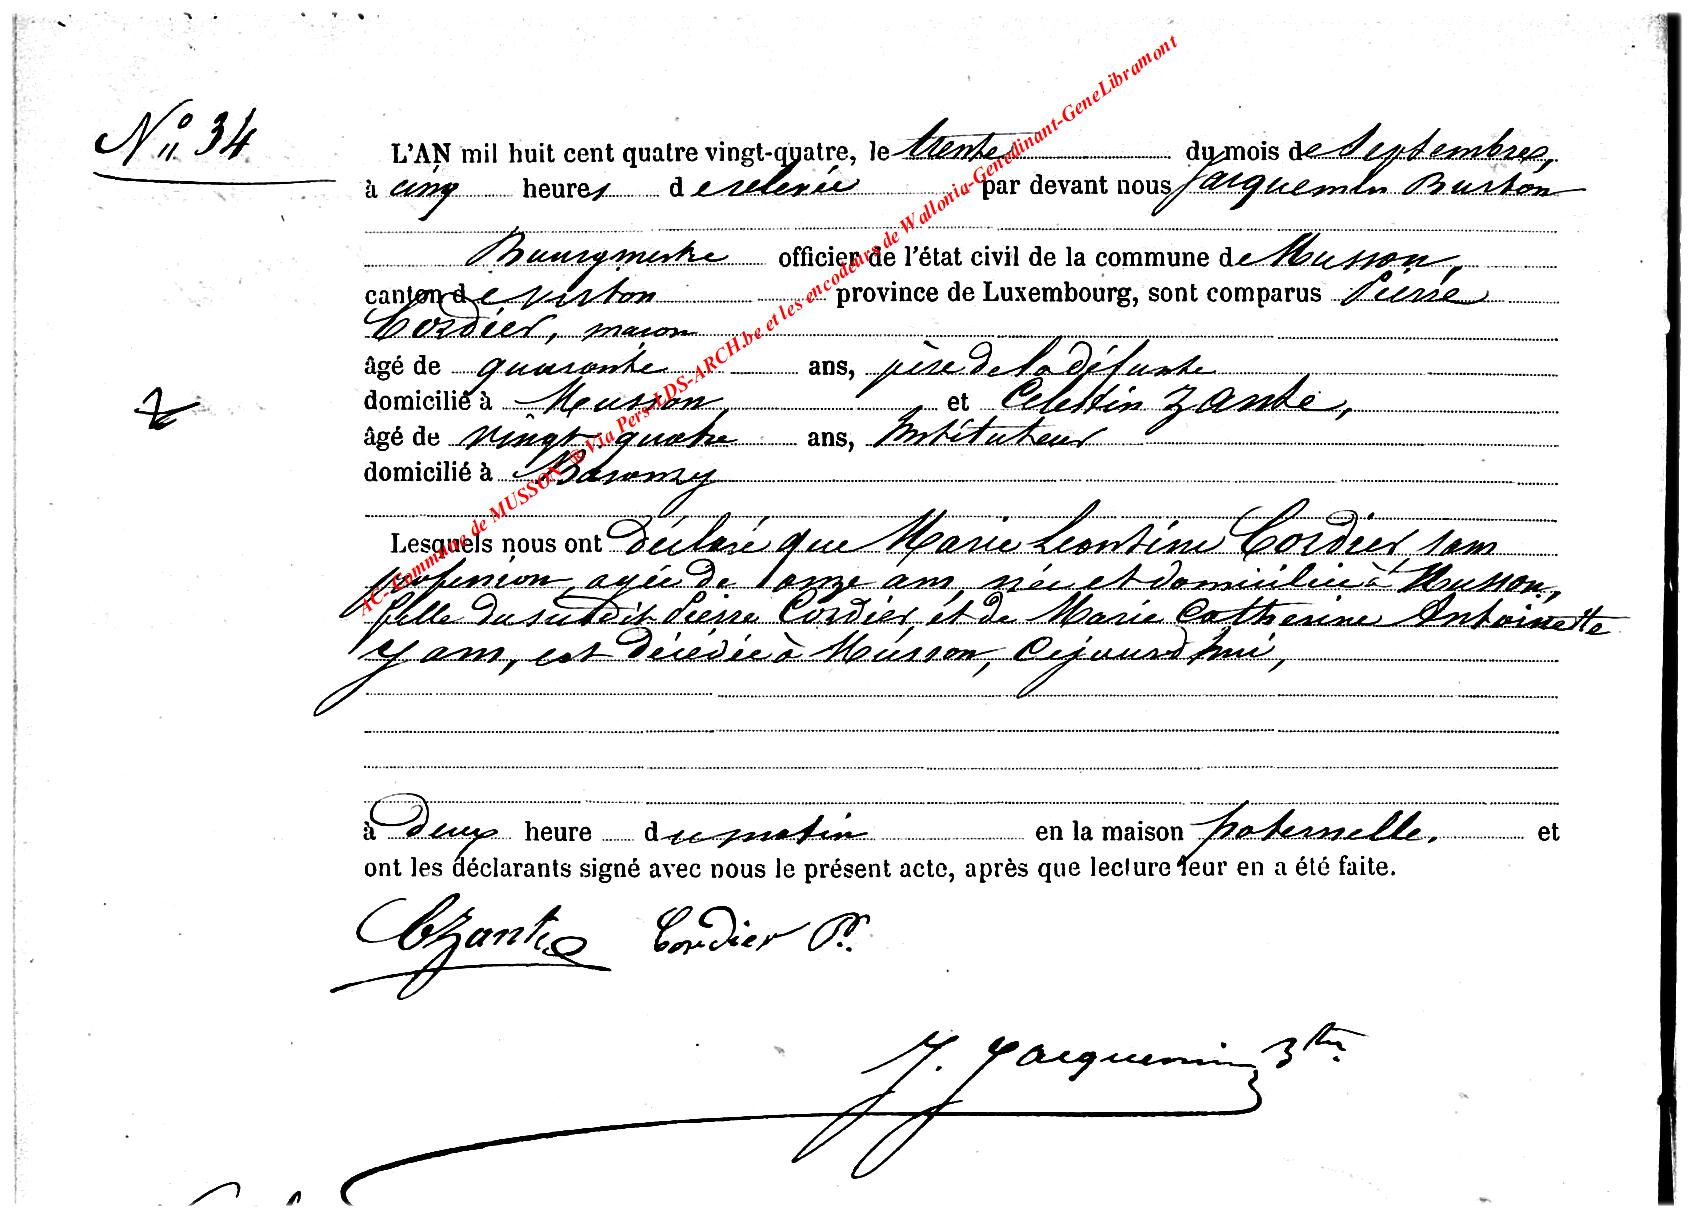 N° 34
L'AN mil huit cent quatre vingt-quatre, le trente du mois de Septembre,
à cinq heures de relevée par devant nous Jacquemin Burton
Bourgmestre officier de l'état civil de la commune de Musson,
canton de Virton province de Luxembourg, sont comparus Pierre
Cordier, maçon
âgé de quarante ans, père de la défunte
domicilié à Musson, et Celestin Zante,
âgé de vingt-quatre ans, Instituteur
domicilié à Baranzy
Lesquels nous ont déclaré que Marie Leontine Cordier, sans
profession, agée de onze ans, née et domiciliée à Musson,
fille du susdit Pierre Cordier, et de Marie Catherine Antoinette
Yans, est décédée à Musson, cejourd'hui,
à deux heure du matin en la maison paternelle. et
ont les déclarants signé avec nous le présent acte, après que lecture leur en a été faite.
CZante Cordier P.
J. Jacquemin
AC-Commune de MUSSON ® Via Pers-LDS-ARCH.be et les encodeurs de Wallonia-Genedinant-GeneLibramont